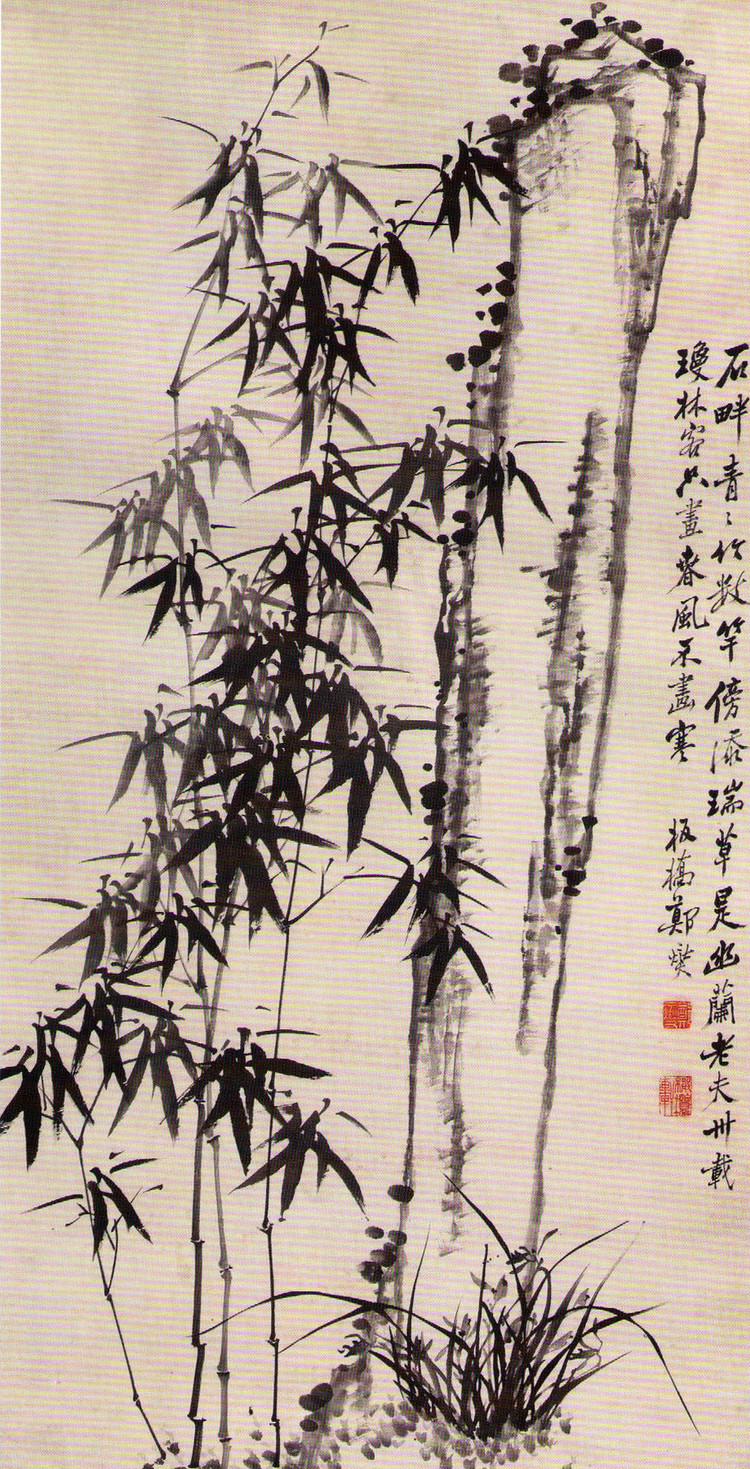 石畔青々竹數竿傍添瑞草是幽蘭老夫卅載
瓊林客只畫春風不畫寒 板橋鄭燮